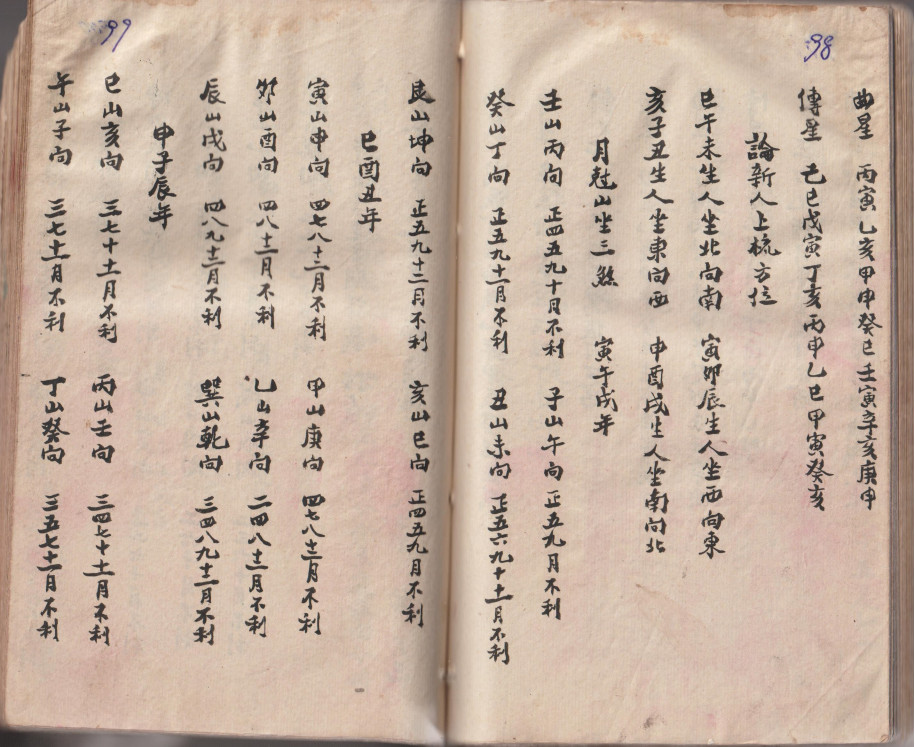 98
曲星 丙寅乙亥甲申癸巳壬寅辛亥庚申
傳星 己巳戊寅丁亥丙申乙巳甲寅癸亥
論新人上梳方位
巳午未生人坐北向南 寅卯辰生人坐西向東
亥子丑生人坐東向西 申酉戌生人坐南向北
月尅山坐三煞 寅午戌年
壬山丙向 正四五九十月不利 子山午向 正五九月不利
癸山丁向 正五九十二月不利 丑山未向 正五六九十十一月不利
99
艮山坤向 正五九十二月不利 亥山巳向 正四五九月不利
巳酉丑年
寅山申向 四七八十二月不利 甲山庚向 四七八十二月不利
卯山酉向 四八十二月不利 乙山辛向 二四八十二月不利
辰山戌向 四八九十二月不利 巽山乾向 三四八九十二月不利
申子辰年
巳山亥向 三七十十一月不利 丙山壬向 三四七十十一月不利
午山子向 三七十一月不利 丁山癸向 三五七十一月不利